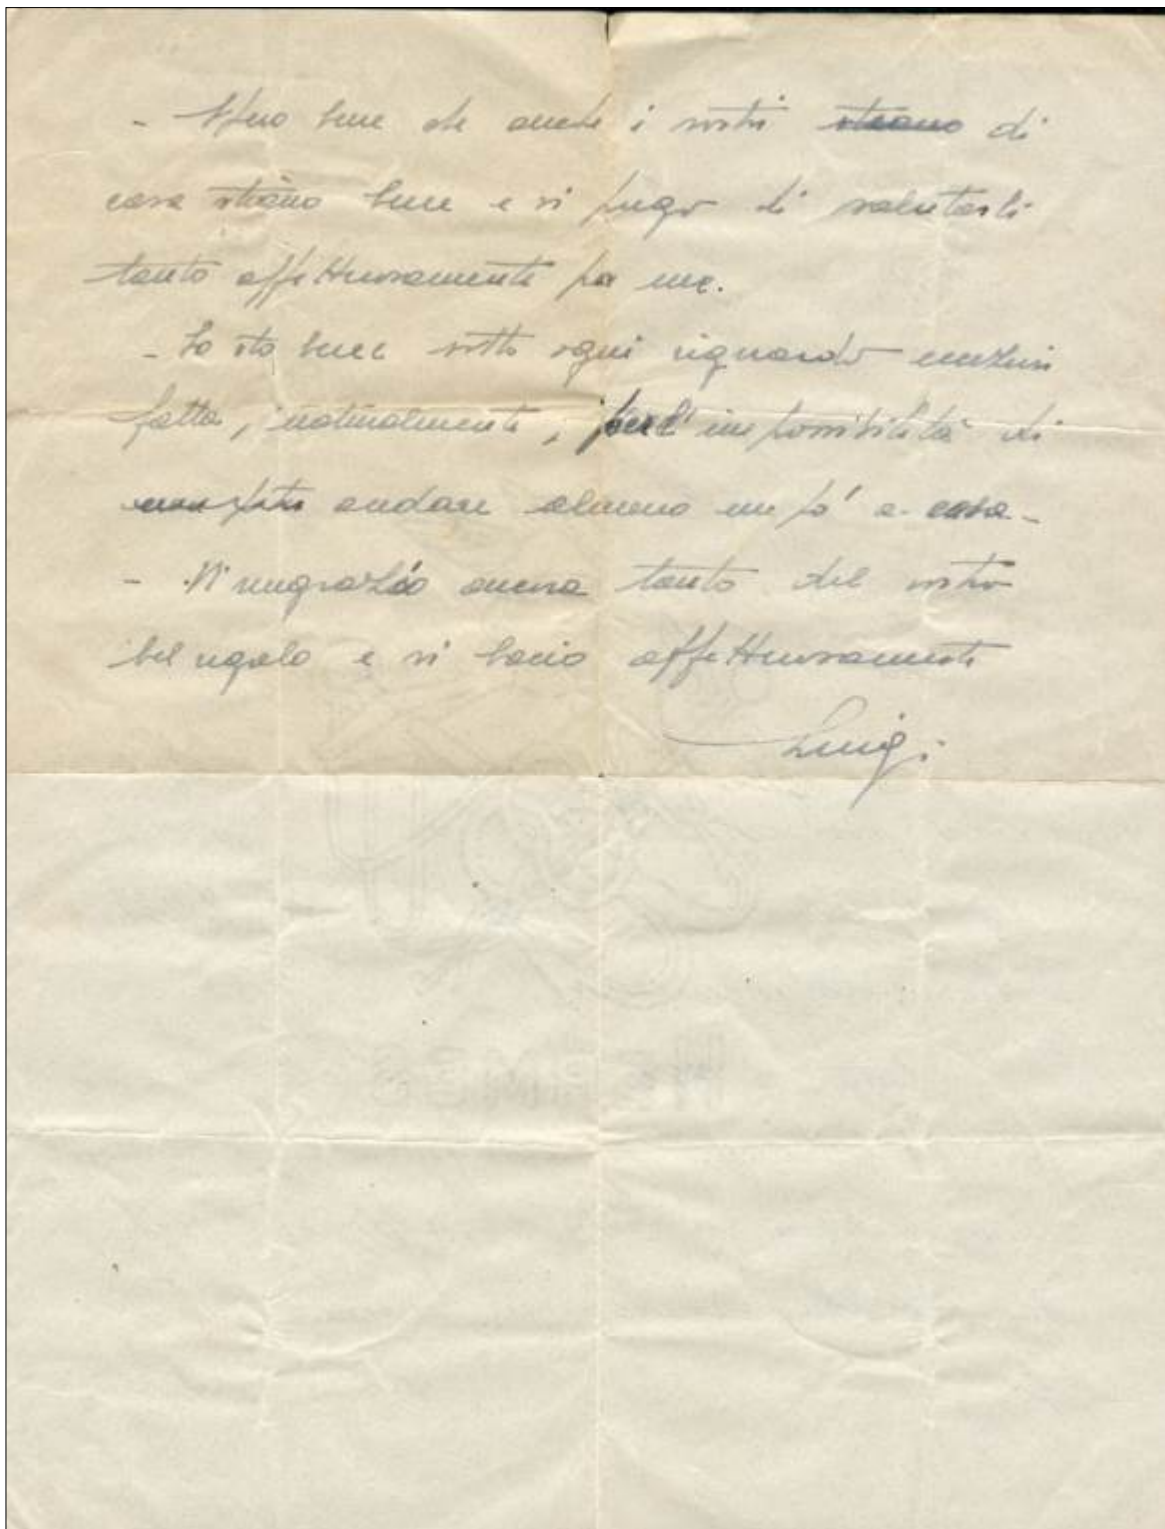 - Spero bene che anche i vostri ~~stiano~~ di
casa stiano bene e vi prego di salutarli
tanto affettuosamente per me.
- Io sto bene sotto ogni riguardo eccezion
fatta, naturalmente, per l'impossibilità di
andare almeno un pò a casa -
- Vi ringrazio ancora tanto del vostro
bel regalo e vi bacio affettuosamente
Luigi
HERMES